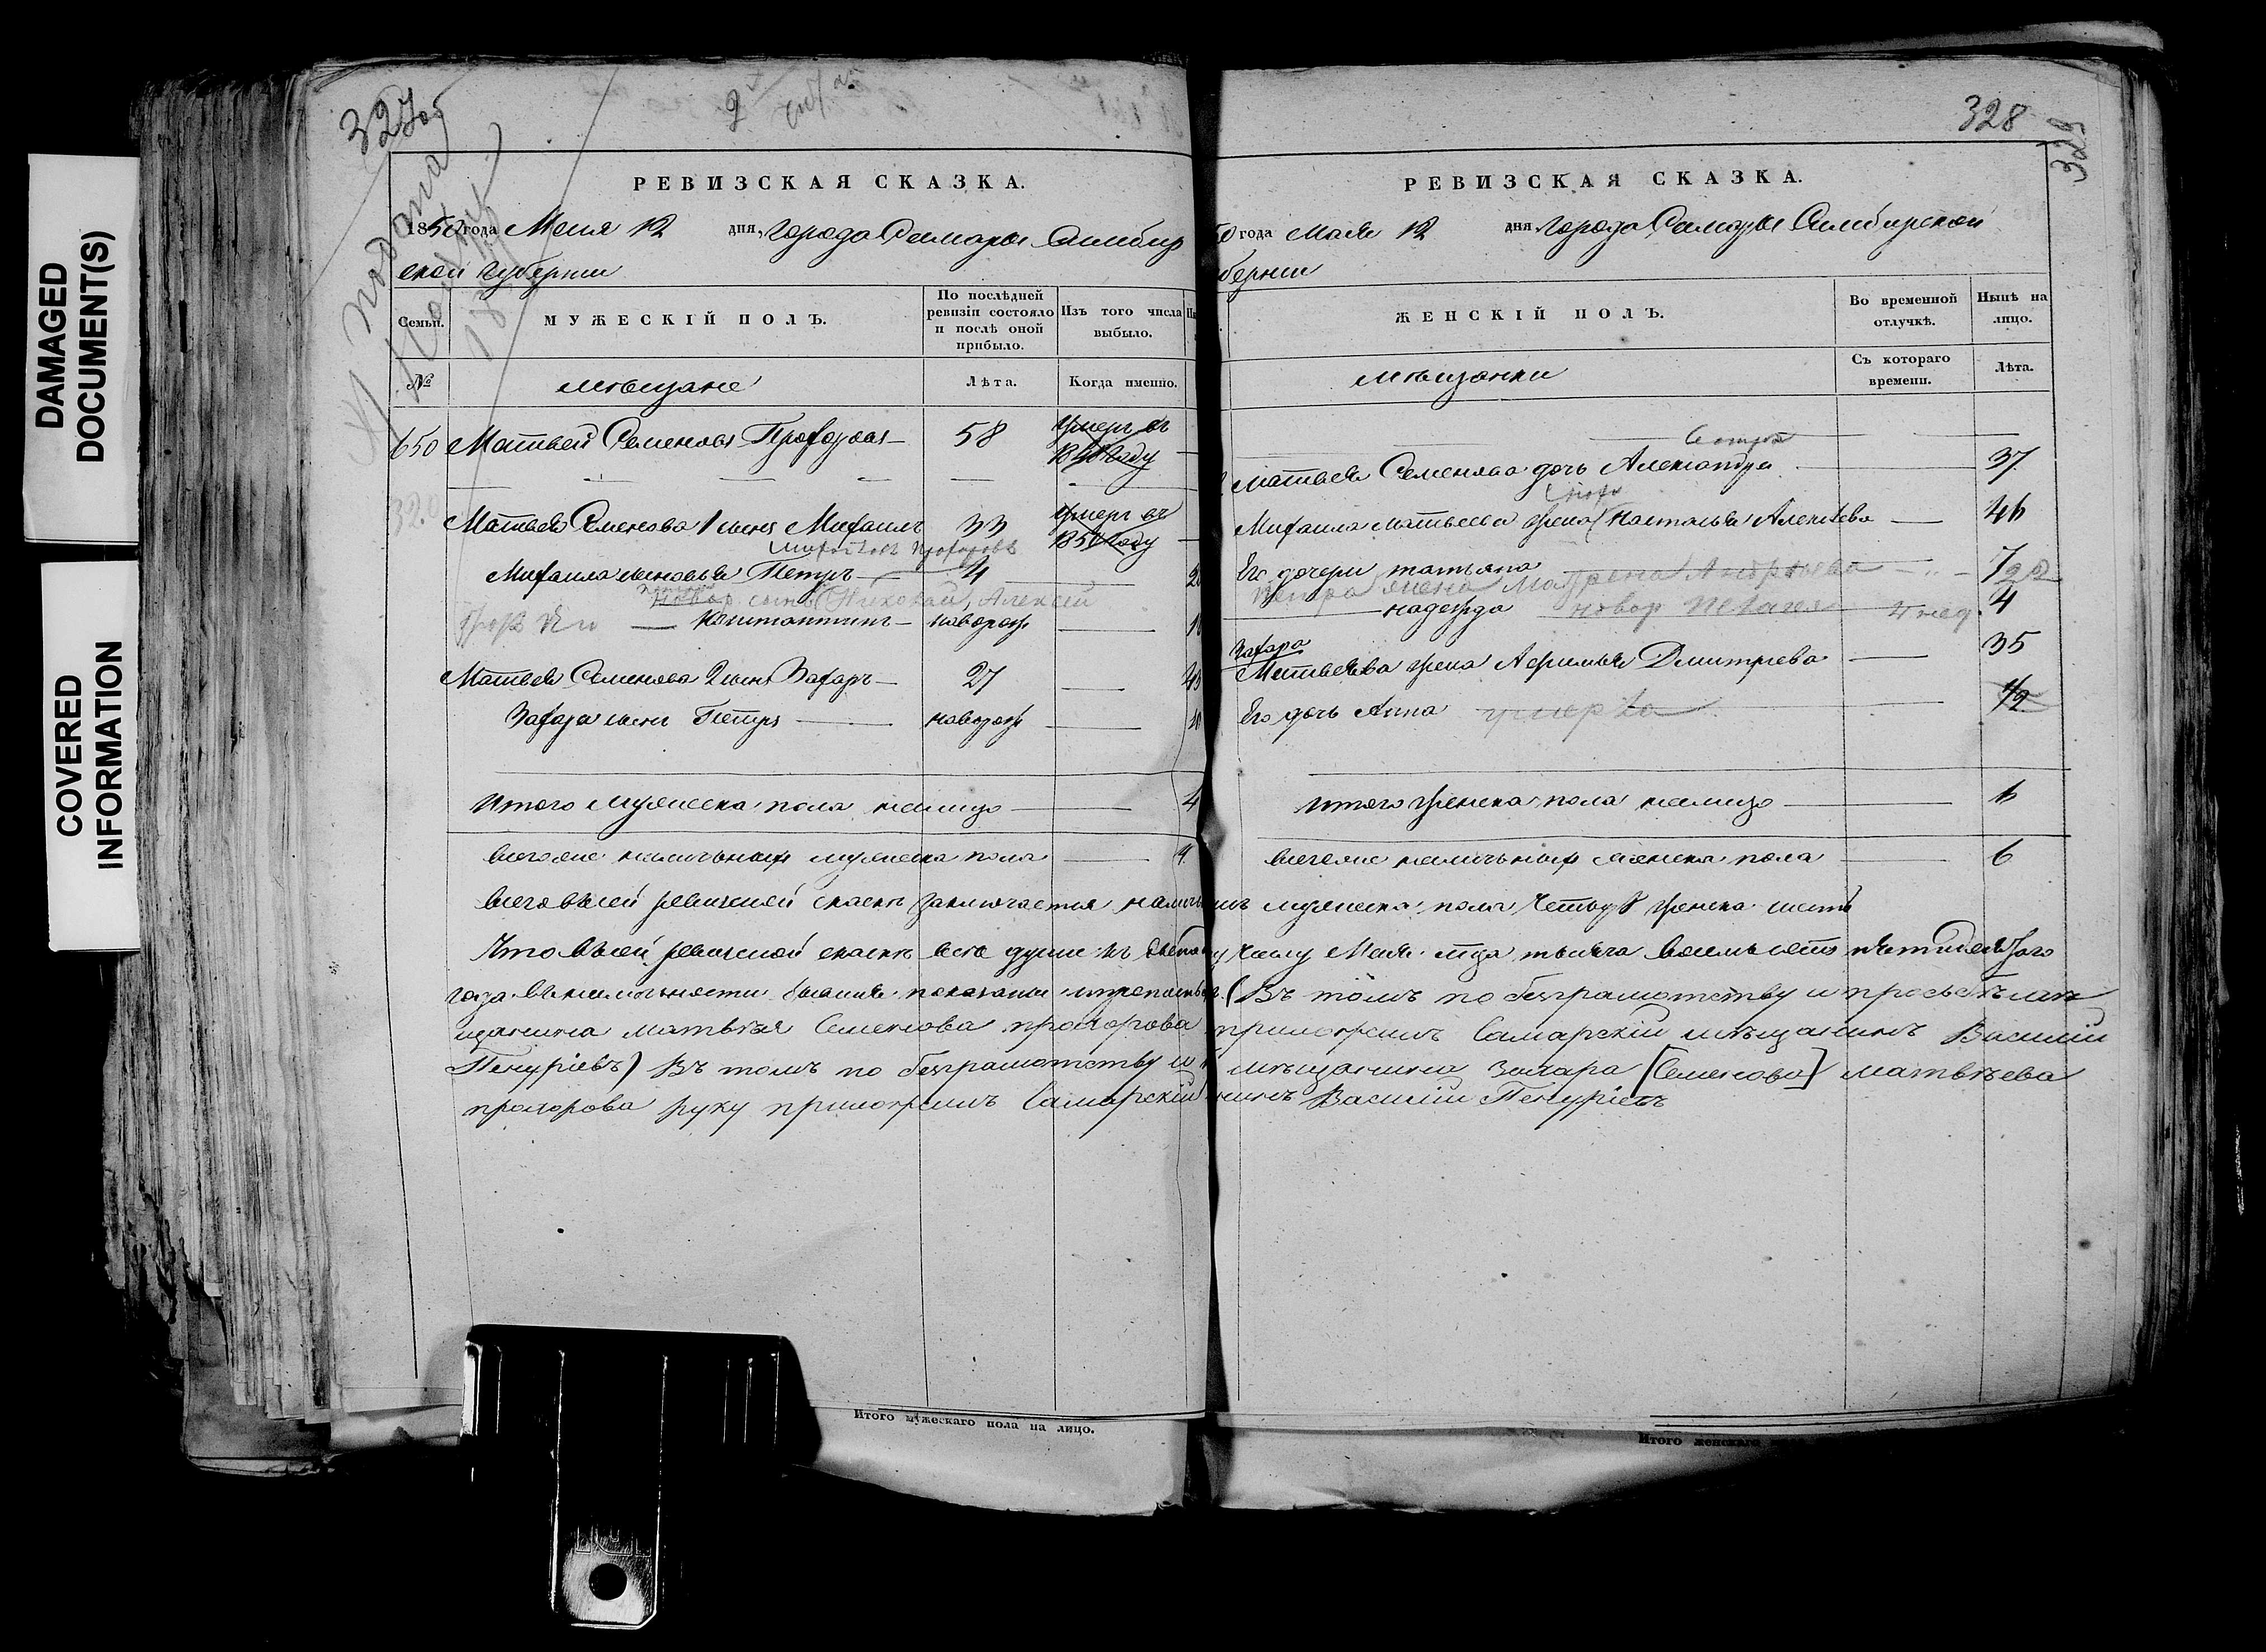 DAMAGED
DOCUMENT(S)
COVERED
INFORMATION
327об
2
подана
РЕВИЗСКАЯ СКАЗКА.
1850 года Маия 12 дня, города Самары Симбир
ской губернии
Семьи. МУЖЕСКІЙ ПОЛЪ. По послѣдней ревизіи состояло и послѣ оной прибыло. Изъ того числа выбыло.
№ мѣщане Лѣта. Когда именно.
650 Матвей Семеновъ Прохоровъ 58 умеръ въ 1840 году
Матвея Семенова 1 сынъ Михаилъ 33 умеръ въ 1850 году
Прохоровъ
Михаила сыновья Петръ 4
Новор сынъ (Николай), Алексей
Константинъ новорож
Матвея Семенова 2 сынъ Захаръ 27
Захара сынъ Петръ новорож
Итого мужеска пола налицо 4
всего же наличныхъ мужеска пола 4.
328
329
РЕВИЗСКАЯ СКАЗКА.
50 года Маия 12 дня города Самары Симбирской
берніи
ЖЕНСКІЙ ПОЛЪ. Во временной отлучкѣ. Нынѣ на лицо.
мѣщанки Съ котораго времени. Лѣта.
сестра
Матвея Семенова дочь Александра 37
Михаила Матвеева жена Настасья Алексѣева 46
Его дочери татьяна 7
Петра жена Матрена Андреева 22
надежда новор Пелагея 4 нед. 4
Захара
Матвеева жена Афимья Дмитрева 35
Его дочь Анна умерла 12
итого женска пола налицо 6
всего же наличныхъ женска пола 6
всего въ сей ревизской скаскѣ заключается мужеска пола четыре женска шесть
Что въ сей ревизской скаскѣ все души къ числу Маия тысяча восемь сотъ пятидесятого
года въ наличности бывшия показаны (Въ томъ по безграмотству и прозьбѣ
щанина матвея Семенова прохорова приложилъ Самарскій мѣщанинъ Василій
Пенуріевъ) Въ томъ по безграмотству и мѣщанина Захара [Семенова] матвѣева
прохорова руку приложилъ Самарскій Василій Пенуріевъ
Итого мужескаго пола на лицо.
Итого женскаго